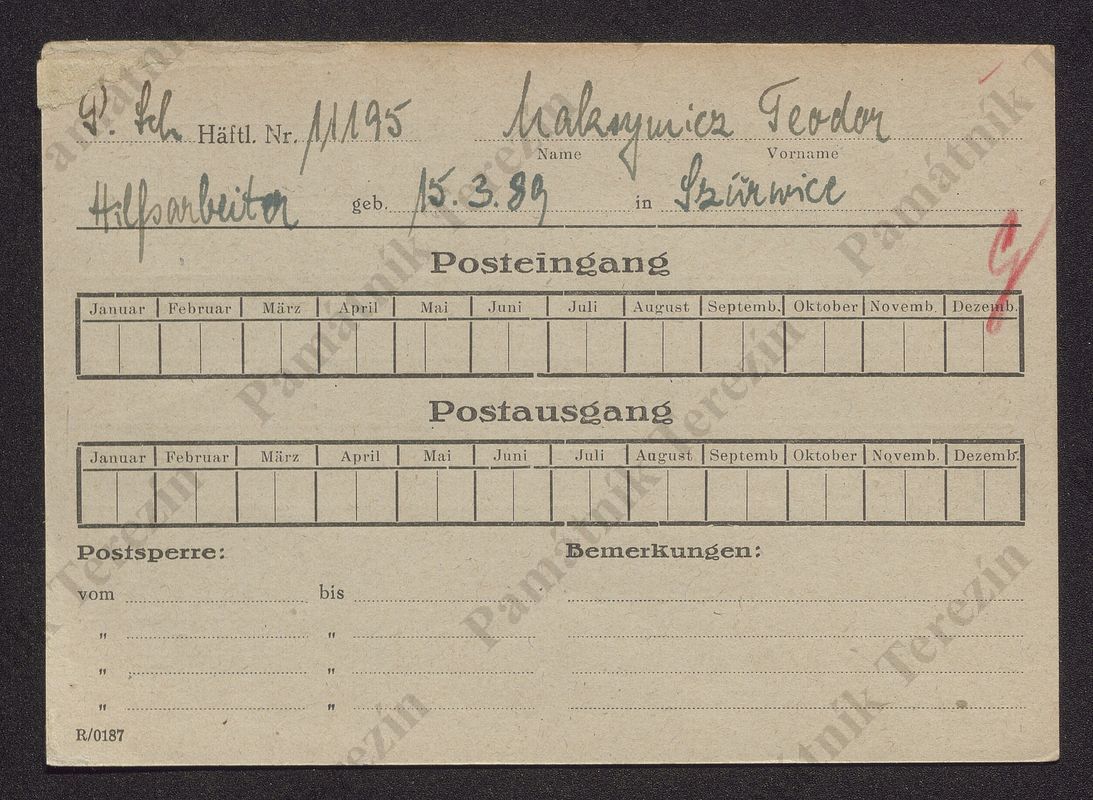 P. Sch. Häftl. Nr. 11195 Maksymicz Teodor
Name Vorname
Hilfsarbeiter geb. 15.3.89 in Szürwice
Posteingang
Januar Februar März April Mai Juni Juli August Septemb. Oktober Novemb. Dezemb.
Postausgang
Januar Februar März April Mai Juni Juli August Septemb Oktober Novemb. Dezemb.
Postsperre: Bemerkungen:
vom bis
" "
" "
" "
R/0187
Památník Terezín